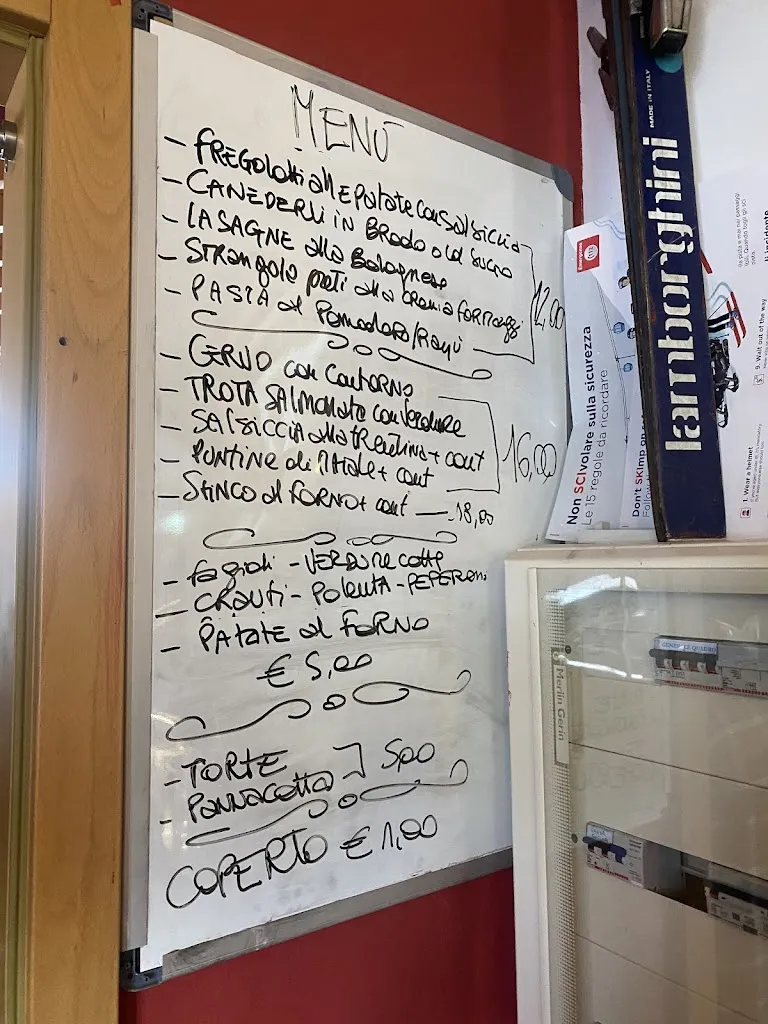 MENÚ
- FREGOLOTTI alle Patate con Salsiccia
- CANEDERLI IN BRODO o col SUGO
- LASAGNE alla Bolognese
- STRANGOLA PRETI alla crema formaggi
- PASTA al Pomodoro/Ragù
12,00
- CERVO con CONTORNO
- TROTA SALMONATA con verdure
- SALSICCIA alla TRENTINA + cont
- PUNTINE di MAIALE + cont
16,00
- STINCO al FORNO + cont — 18,00
- fagioli - VERDURE cotte
- CRAUTI - POLENTA - PEPERONI
- PATATE al FORNO
€ 5,00
- TORTE
- PANNACOTTA
5,00
COPERTO € 1,00
lamborghini
MADE IN ITALY
Non SCIvolare sulla sicurezza
Le 15 regole da ricordare
Don't SKImp on
Follow
1. Wear a helmet
9. Walt out of the way
Merlin Gerin